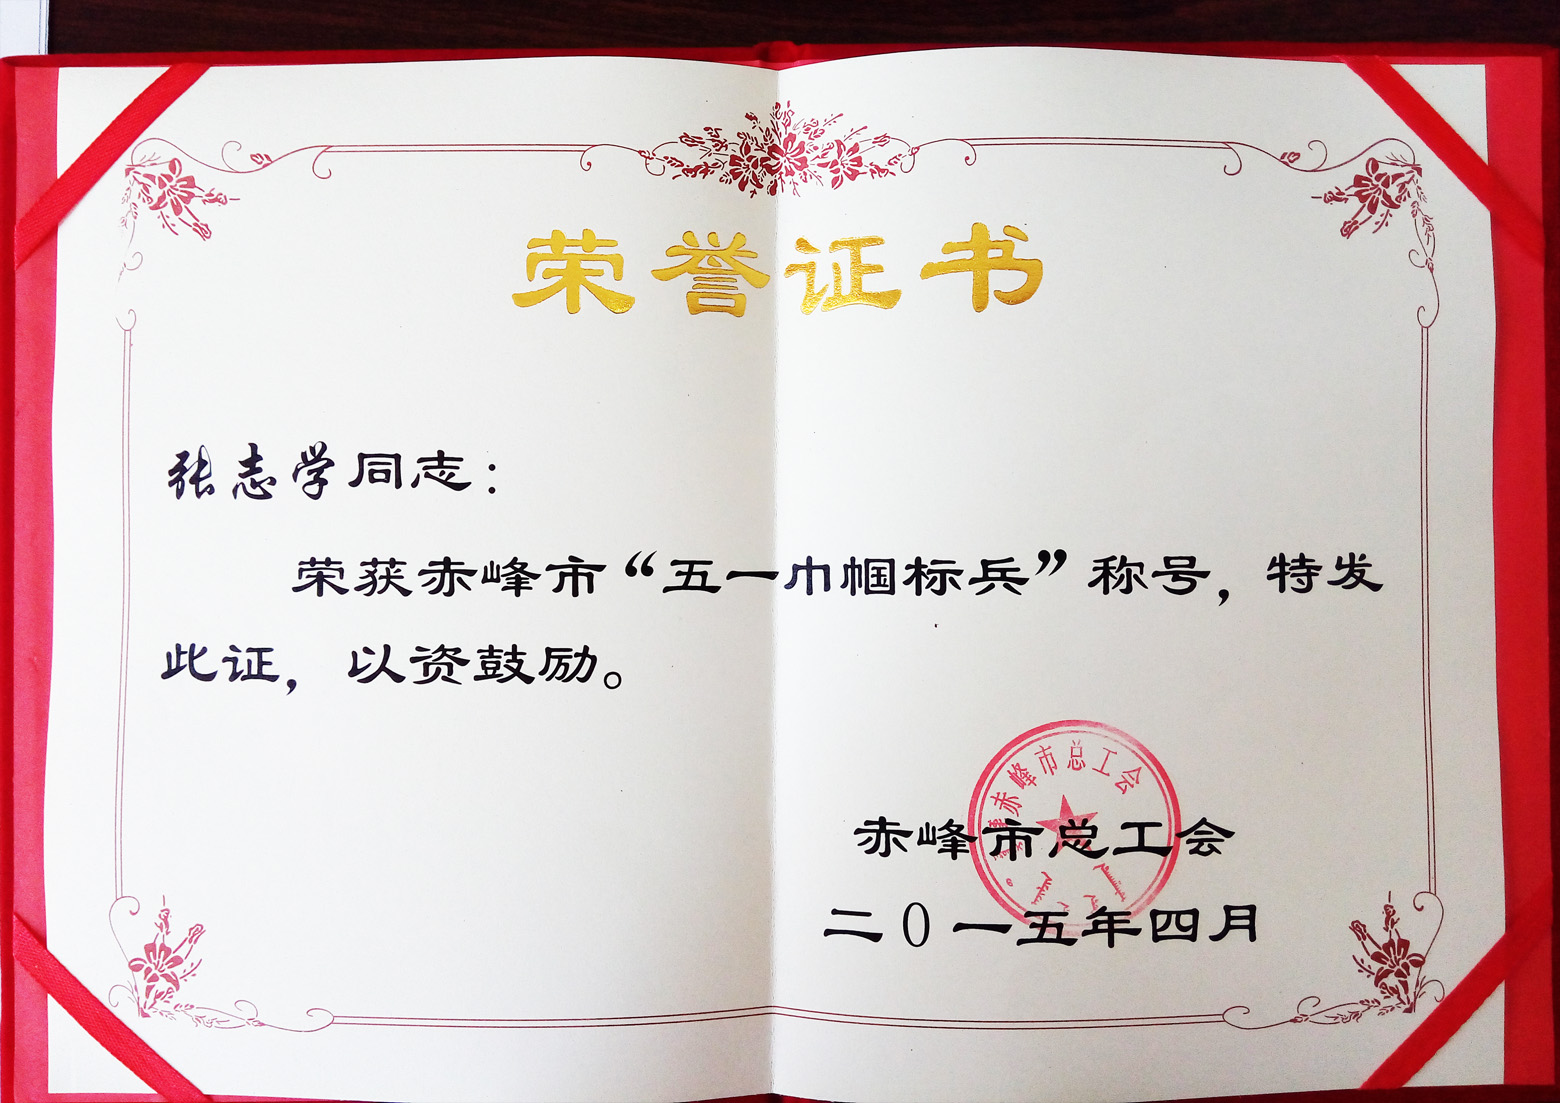 荣誉证书
张志学同志：
荣获赤峰市“五一巾帼标兵”称号，特发
此证，以资鼓励。
赤峰市总工会
赤峰市总工会
二0一五年四月